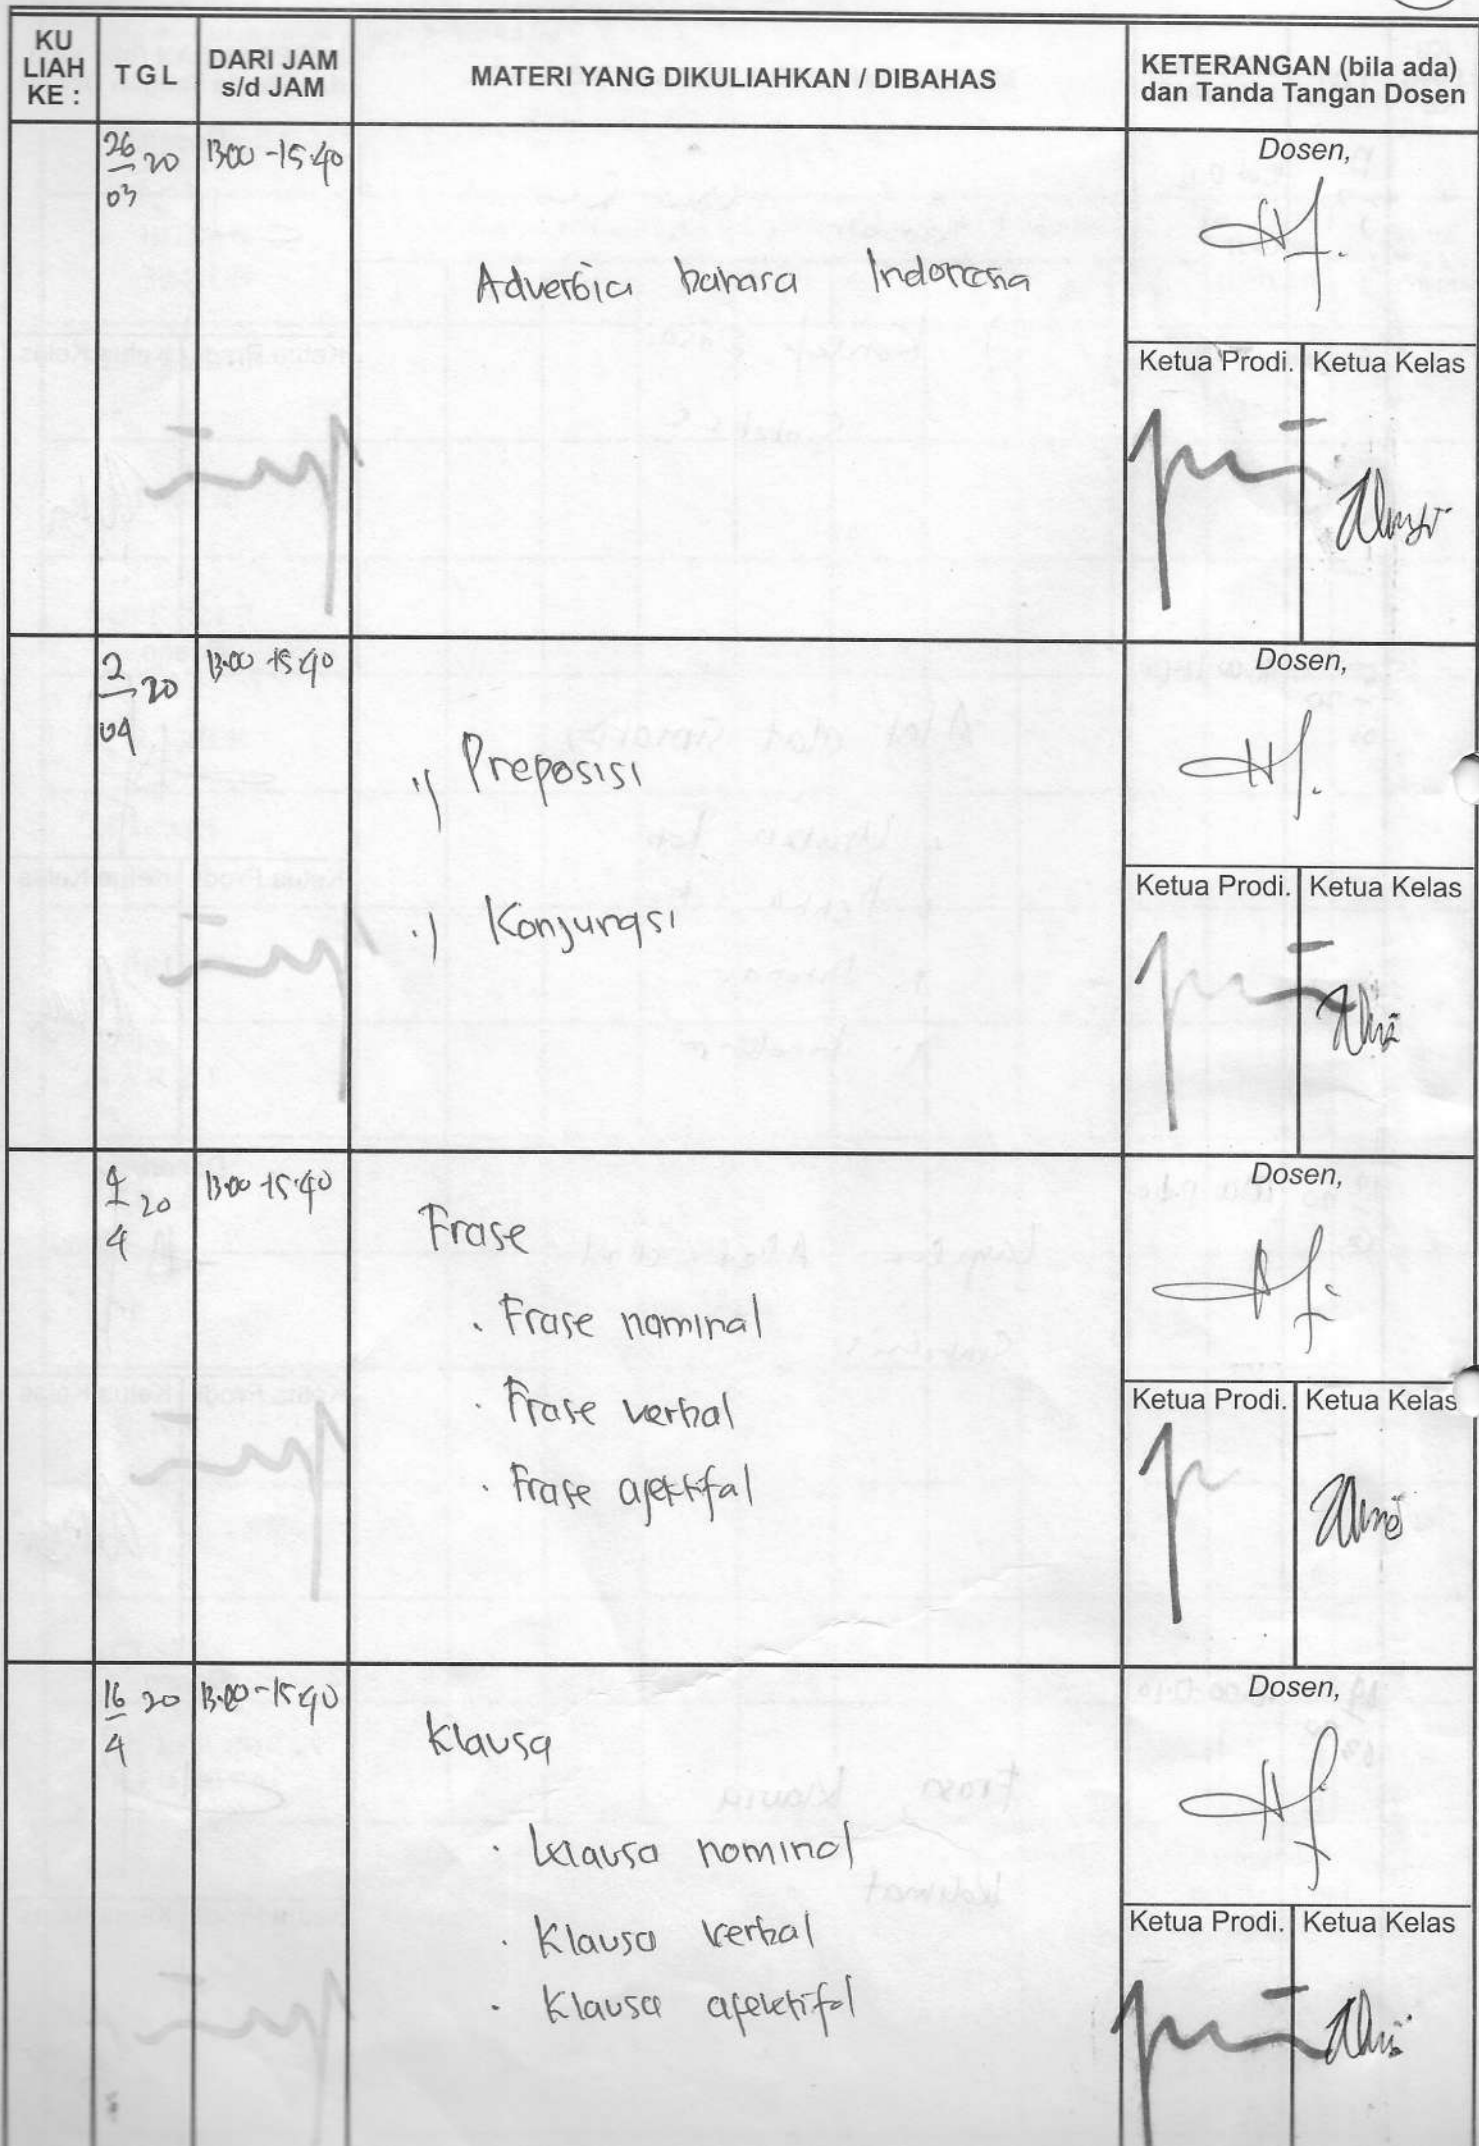 KU LIAH KE :
TGL
DARI JAM s/d JAM
MATERI YANG DIKULIAHKAN / DIBAHAS
KETERANGAN (bila ada) dan Tanda Tangan Dosen
26/03 20
13.00 - 15.40
Adverbia bahasa Indonesia
Dosen,
Ketua Prodi.
Ketua Kelas
2/04 20
13.00 - 15.40
Preposisi
Konjungsi
Dosen,
Ketua Prodi.
Ketua Kelas
20
4
13.00 - 15.40
Frase
. Frase nominal
. Frase verbal
. Frase ajektifal
Dosen,
Ketua Prodi.
Ketua Kelas
16/4 20
13.00 - 15.40
Klausa
. Klausa nominal
. Klausa verbal
. Klausa ajektifal
Dosen,
Ketua Prodi.
Ketua Kelas